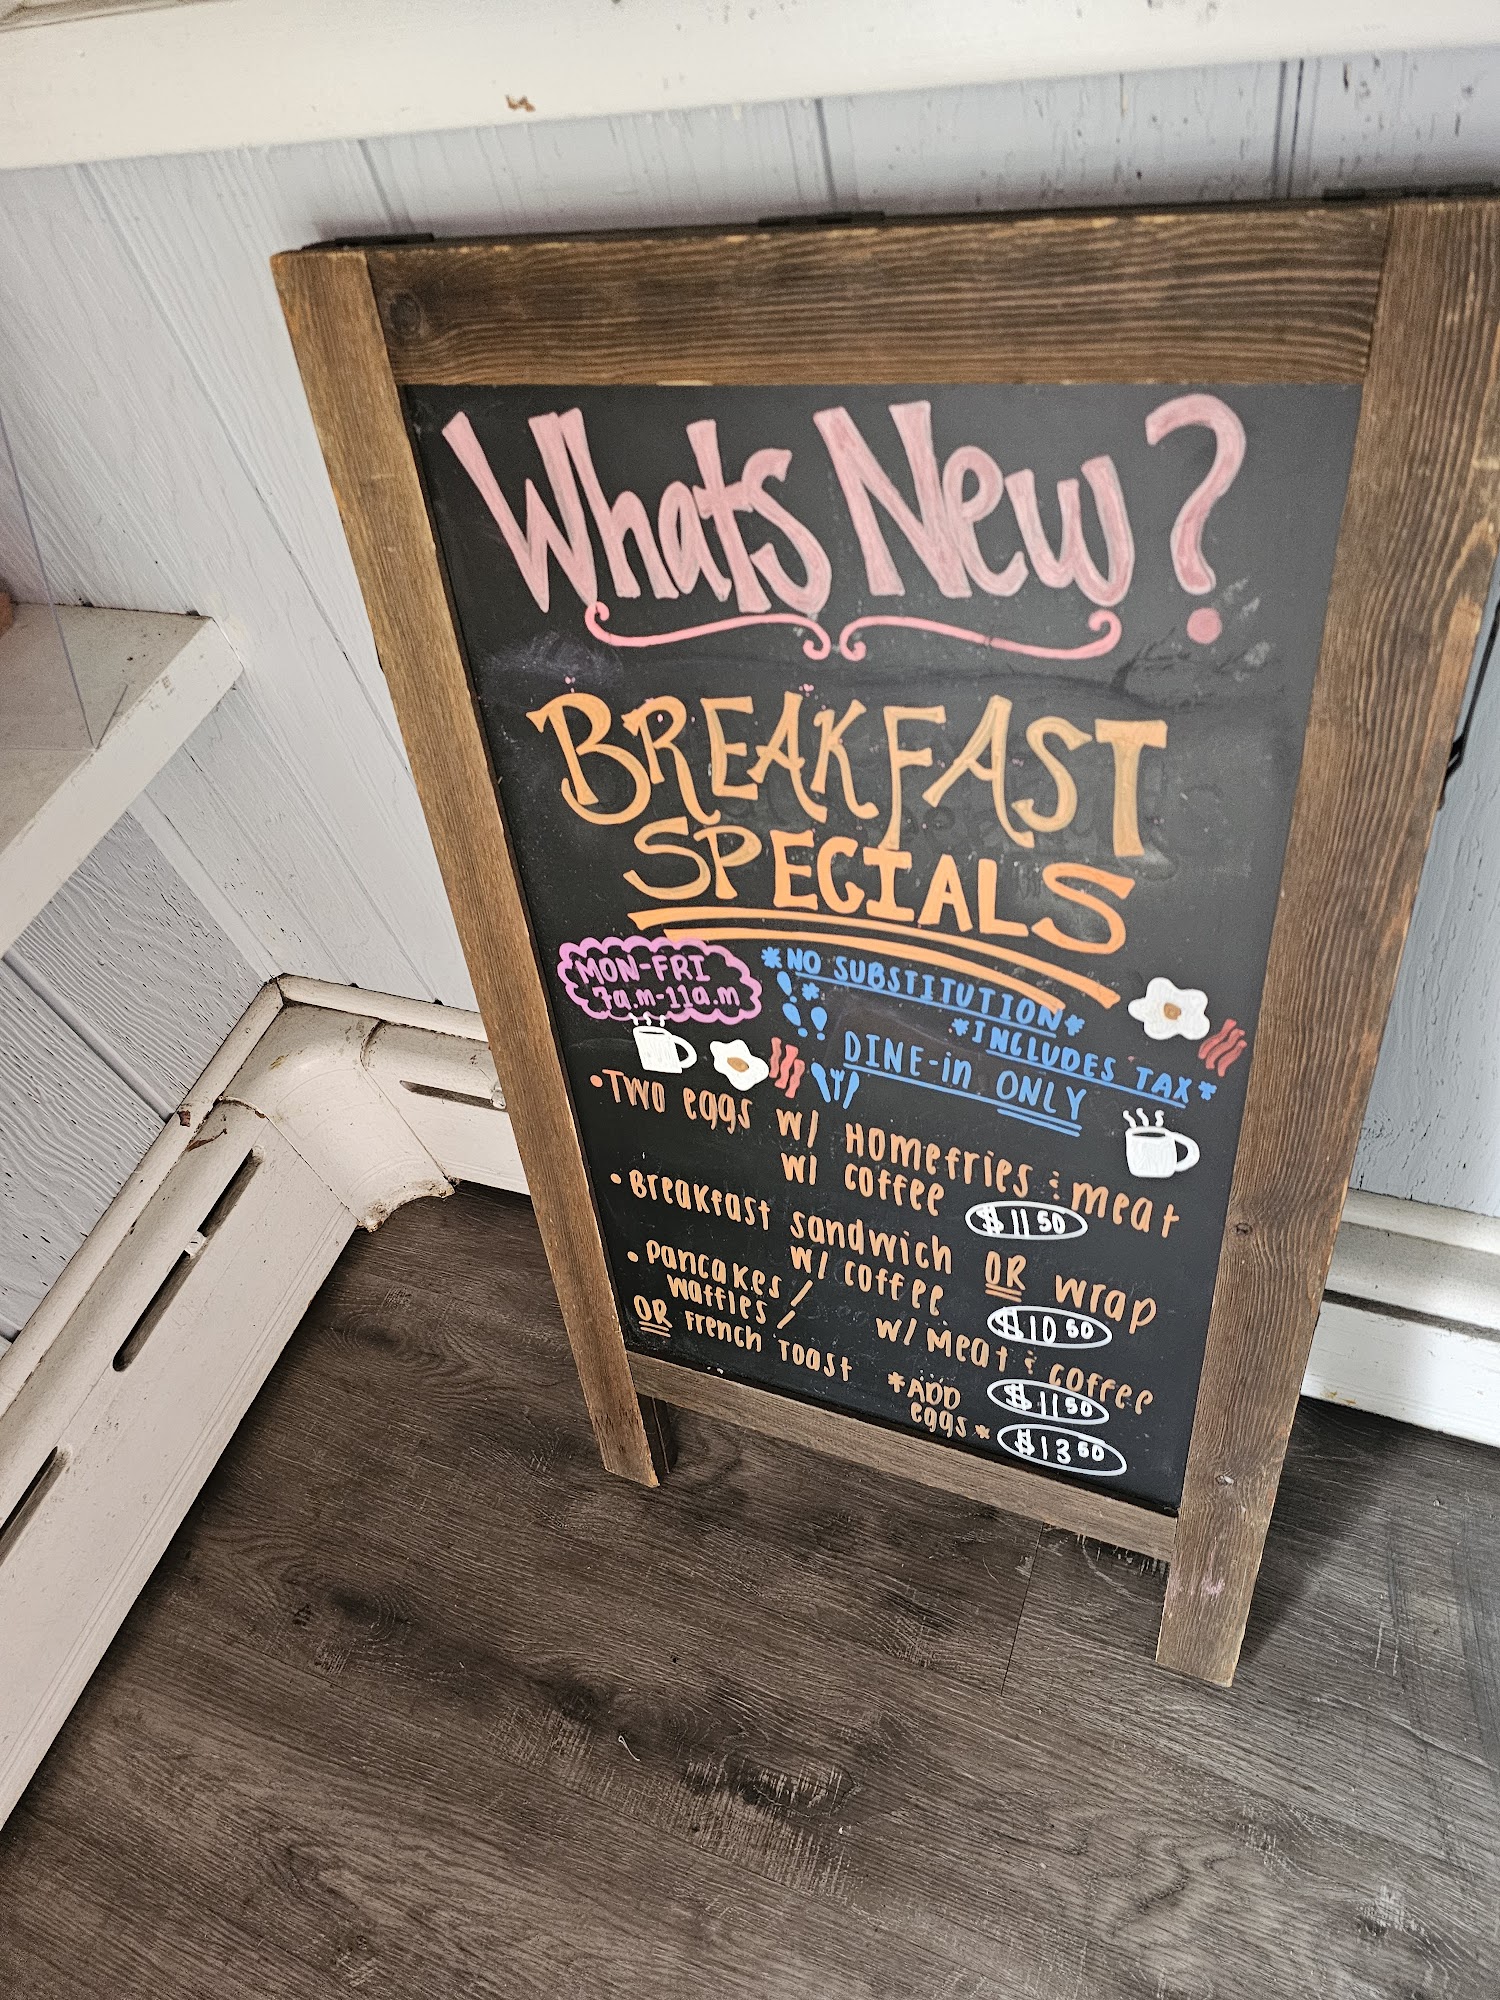 Whats New?
BREAKFAST
SPECIALS
MON-FRI
7a.m-11a.m
*NO SUBSTITUTION*
!*
!!
*INCLUDES TAX*
DINE-in ONLY
• Two eggs w/ Homefries & meat
w/ coffee $11 50
• Breakfast sandwich OR wrap
w/ coffee $10 50
• Pancakes /
waffles / w/ Meat & coffee
OR French Toast $11 50
*ADD
eggs* $13 50